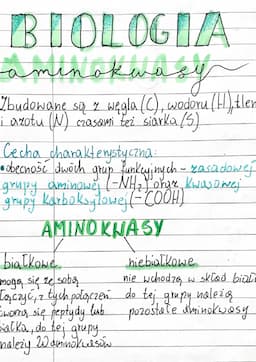 BIOLOGIA
aminokwasy
Zbudowane są z węgla (C), wodoru (H), tlen
i azotu (N) czasami też siarka (S)
Cecha charakterystyczna:
• obecność dwóch grup funkcyjnych - zasadowej
grupy aminowej (-NH2) oraz kwasowej
grupy karboksylowej (-COOH)
AMINOKWASY
białkowe
niebiałkowe
mogą się ze sobą
łączyć, z tych połączeń
tworzą się peptydy lub
białka, do tej grupy
należy 20 aminokwasów
nie wchodzą w skład biał
do tej grupy należą
pozostałe aminokwasy